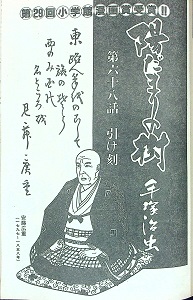 第29回小学館漫画賞受賞!!
陽だまりの樹
第六十八話 引け刻
手塚治虫
東路へ筆をのこして
旅のそら
西のみ国の
名ところを
見
廣重
安藤広重
(一七九七〜一八五八年)